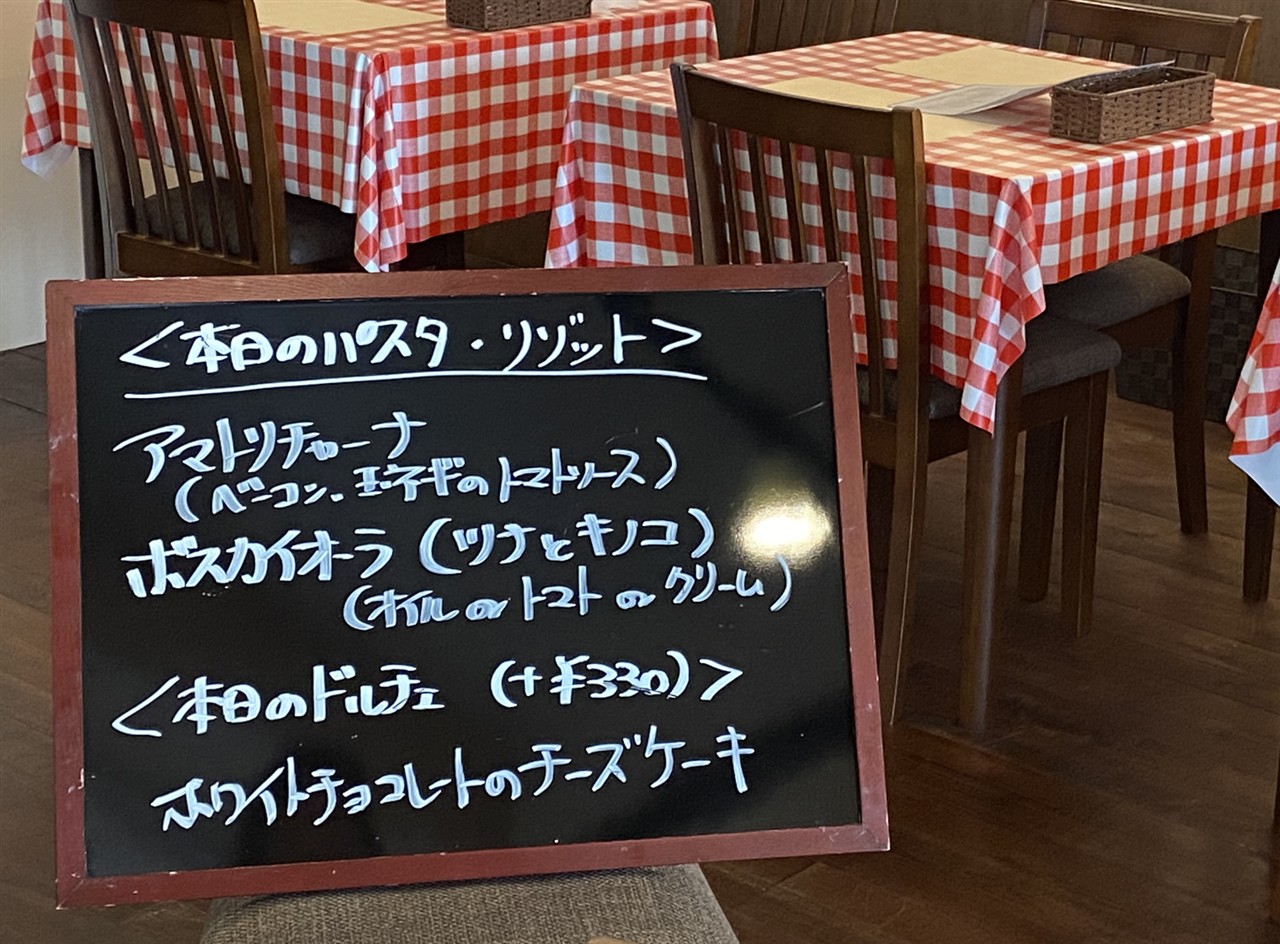 <本日のパスタ・リゾット>
アマトリチャーナ
(ベーコン、玉ネギのトマトソース)
ボスカイオーラ (ツナとキノコ)
(オイル or トマト or クリーム)
<本日のドルチェ (+¥330)>
ホワイトチョコレートのチーズケーキ